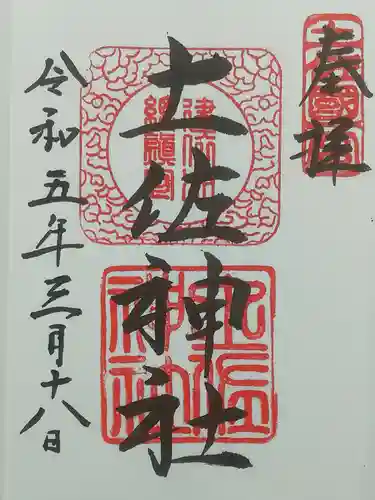 奉拝
土佐神社
令和五年三月十八日
土佐神社